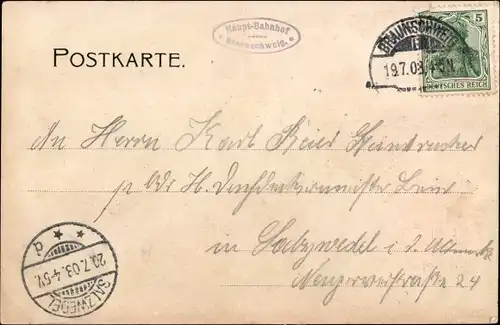 POSTKARTE.
Haupt-Bahnhof
Braunschweig.
BRAUNSCHWEIG
19.7.03.
5
DEUTSCHES REICH
An Herrn Karl Beier Steindrucker
p. Adr. H. Dachdeckermeister
in Salzwedel i. d. Altmark
Neuperverstraße 24
SALZWEDEL
20.7.03. 4-5V.
d